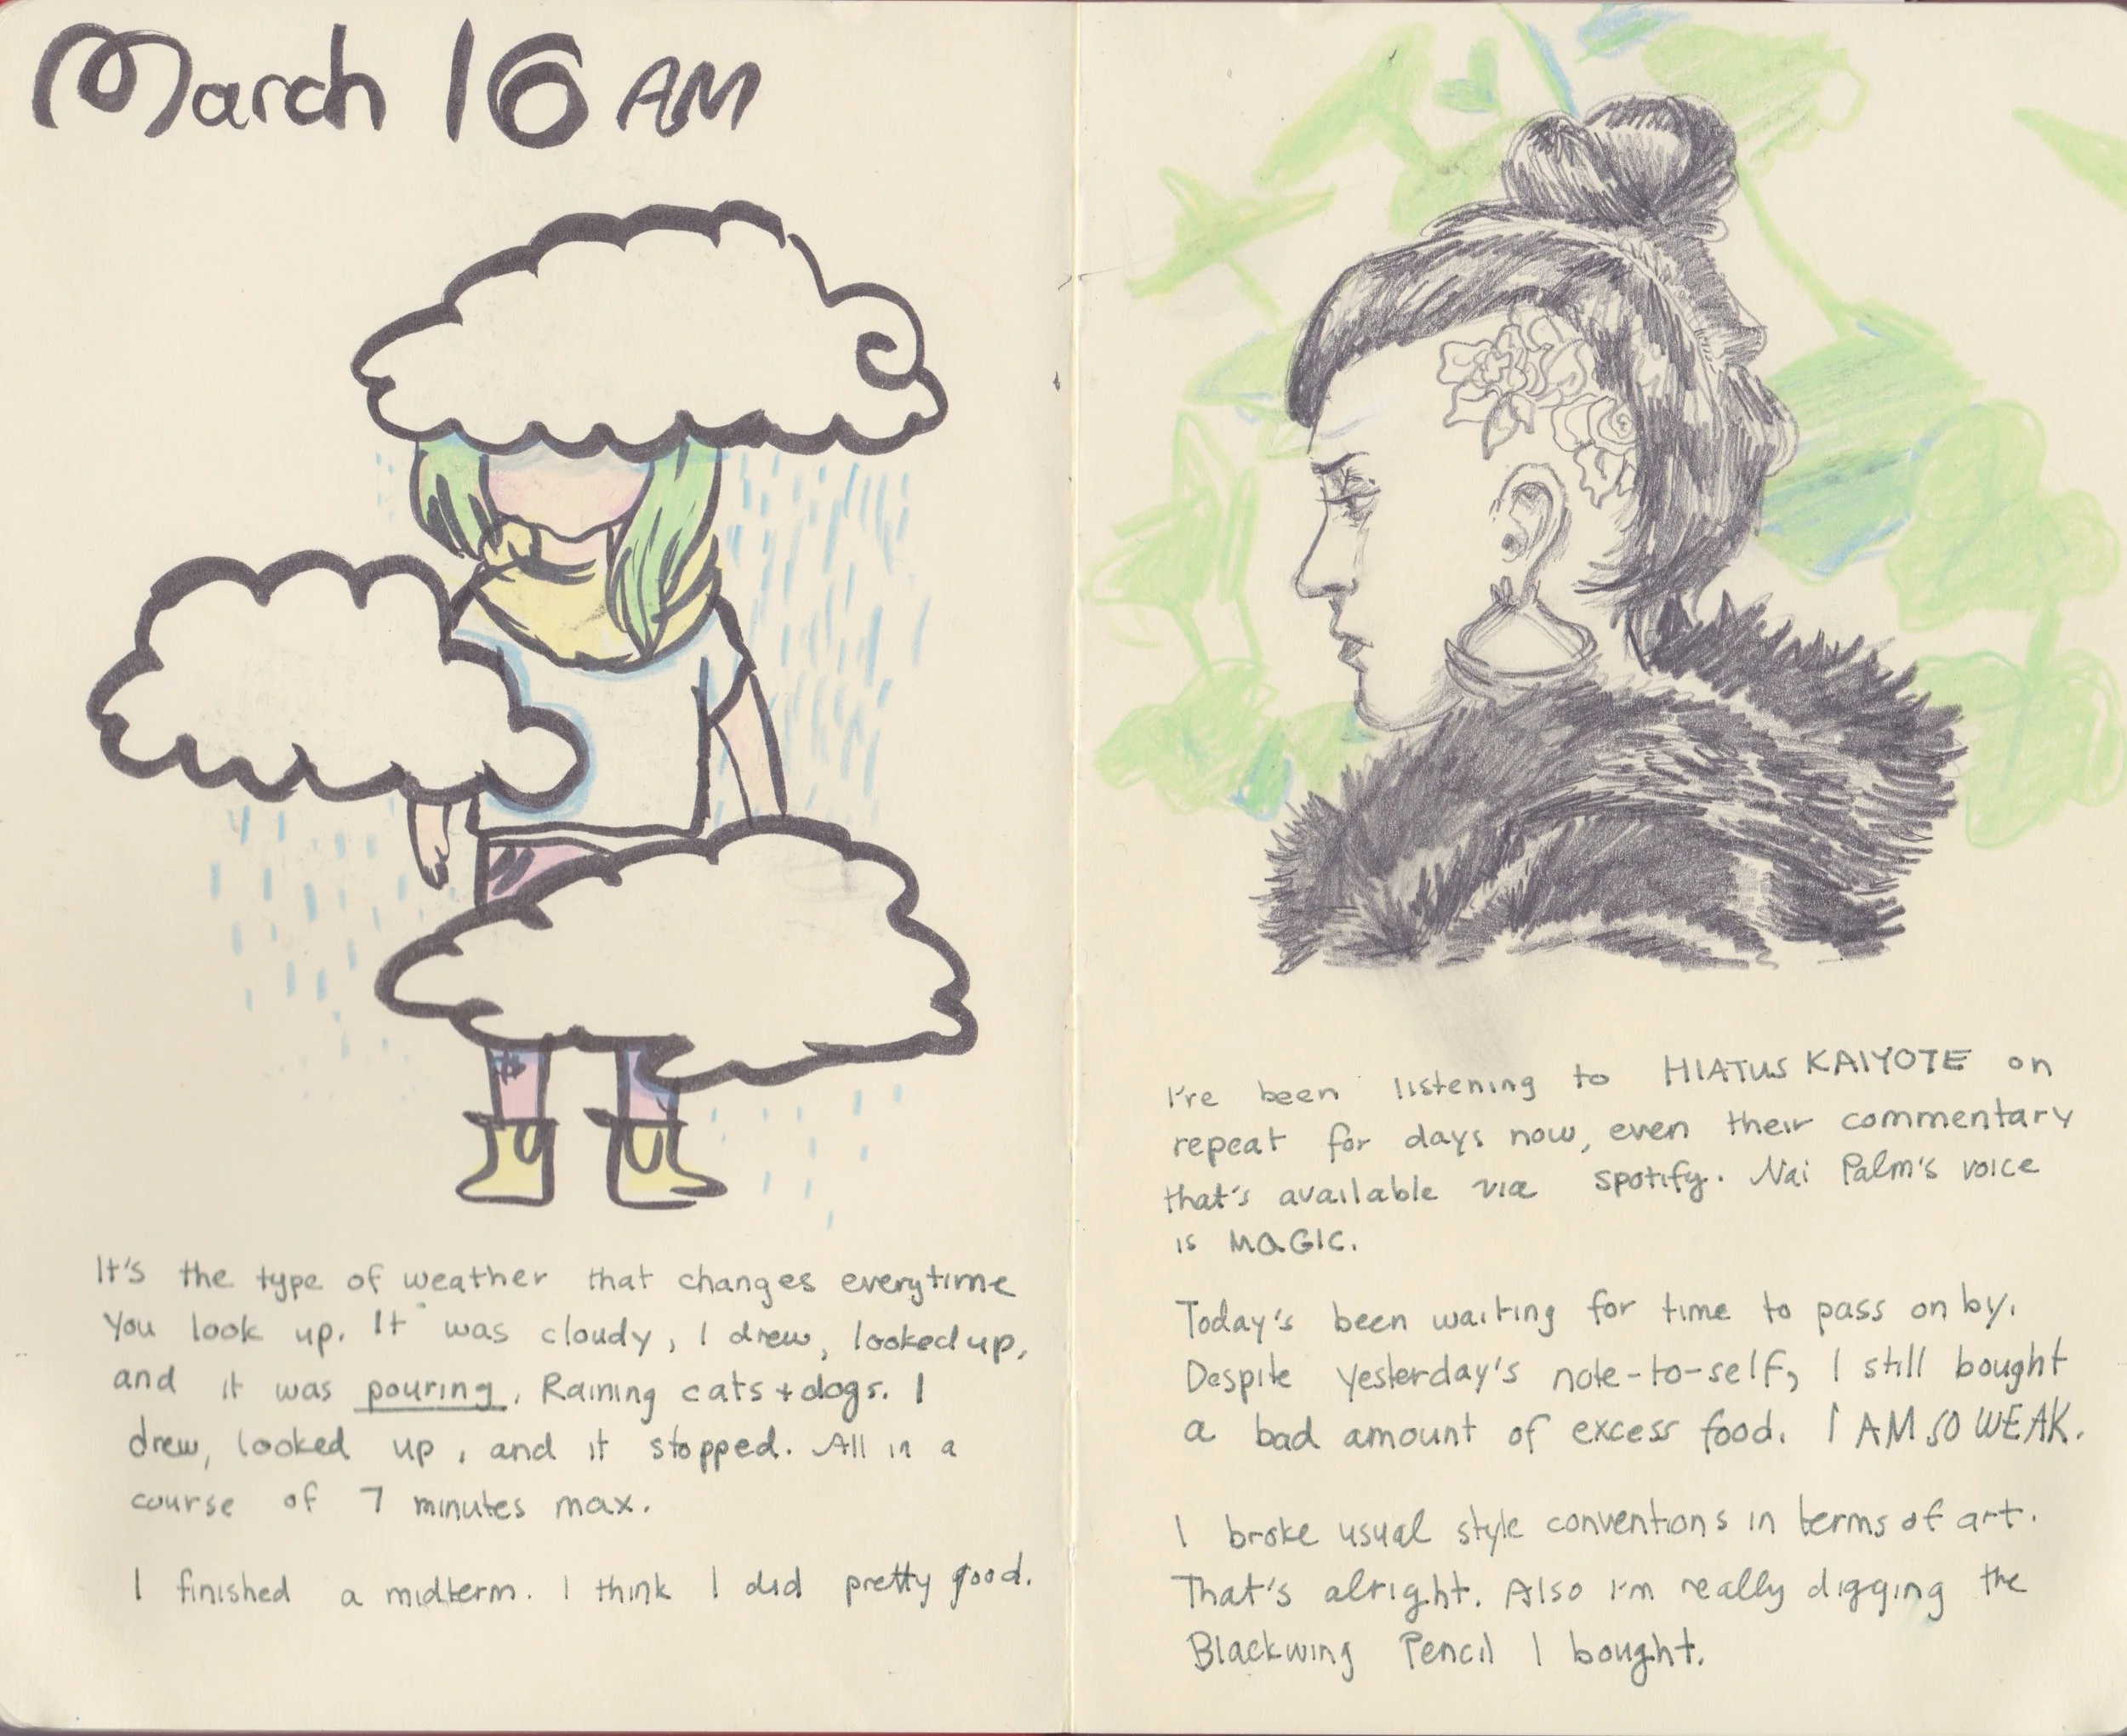 March 16 AM
It's the type of weather that changes everytime
You look up. It was cloudy, I drew, looked up,
and it was pouring. Raining cats + dogs. I
drew, looked up, and it stopped. All in a
course of 7 minutes max.
I finished a midterm. I think I did pretty good.
I're been listening to HIATUS KAIYOTE on
repeat for days now, even their commentary
that's available via spotify. Nai Palm's voice
is MAGIC.
Today's been waiting for time to pass on by.
Despite yesterday's note-to-self, I still bought
a bad amount of excess food. I AM SO WEAK.
I broke usual style conventions in terms of art.
That's alright. Also I'm really digging the
Blackwing Pencil I bought.